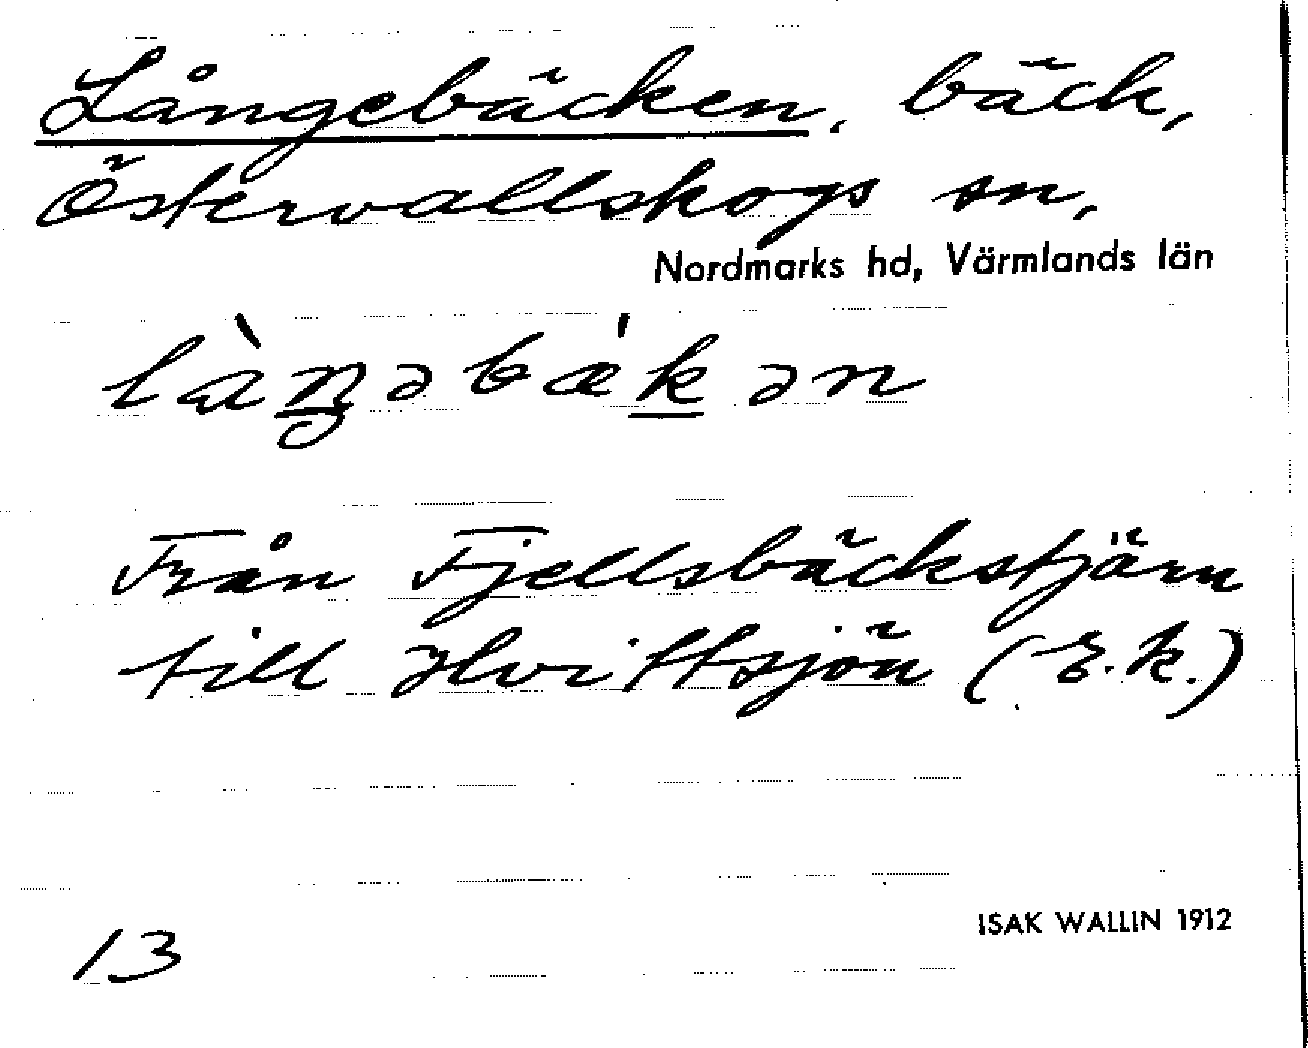 Långebäcken, bäck,
Östervallskogs sn,
Nordmarks hd, Värmlands län
làŋəbæ'kən
Från Fjellsbäckstjärn
till Hvittsjön (E.k.)
13
ISAK WALLIN 1912